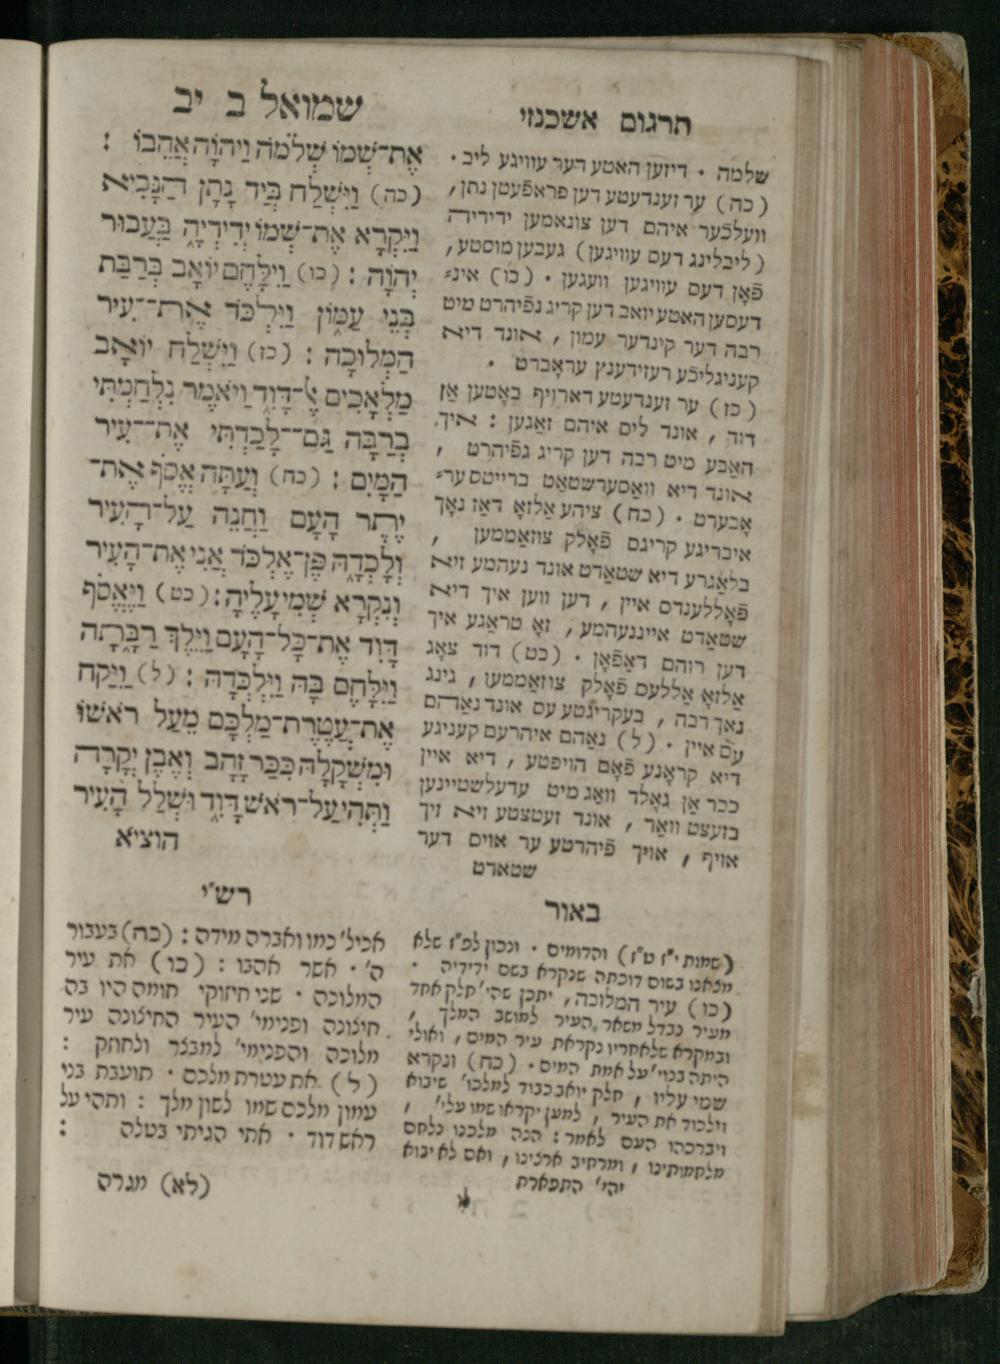 תרגום אשכנזי
שלמה · דיזען האטע דער עוויגע ליב ·
(כה) ער זענדעטע דען פראפֿעטן נתן,
וועלכֿער איהם דען צונאמען ידידיה
(ליבלינג דעס עוויגען) געבען מוסטע,
פֿאָן דעס עוויגען וועגען · (כו) אינ־
דעסען האטע יואב דען קריג געפֿיהרט מיט
רבה דער קינדער עמון, אונד דיא
קעניגליכֿע רעזידענץ עראָברט ·
(כז) ער זענדעטע דארויף באָטען אַן
דוד, אונד ליס איהם זאַגען : איך
האַבע מיט רבה דען קריג גפֿיהרט,
אונד דיא וואַסערשטאַט ברייטס ער־
אָבערט · (כח) ציהע אַלזאָ דאַז נאָך
איבריגע קריגס פֿאָלק צוזאַממען,
בלאַגרע דיא שטאַדט אונד נעהמע זיא
פֿאָללענדס איין, דען ווען איך דיא
שטאַדט אייננעהמע, זאָ טראַגע איך
דען רוהם דאַפֿאָן · (כט) דוד צאָג
אַלזאָ אַללעס פֿאָלק צוזאַממען, גינג
נאך רבה, בעקריגטע עס אונד נאַהם
עס איין · (ל) נאַהם איהרעם קעניגע
דיא קראָנע פֿאָם הויפטע, דיא איין
ככר אַן גאָלד וואַג מיט עדעלשטיינען
בזעצט וואַר, אונד זעטצטע זיא זיך
אויף, אויך פֿיהרטע ער אויס דער
שטאדט
שמואל ב יב
אֶת־שְׁמוֹ שְׁלֹמֹה וַיהוָֹה אֲהֵבוֹ :
(כה) וַיִּשְׁלַח בְּיַד נָתָן הַנָּבִיא
וַיִּקְרָא אֶת־שְׁמוֹ יְדִידְיָהּ בַּעֲבוּר
יְהוָֹה : (כו) וַיִּלָּחֶם יוֹאָב בְּרַבַּת
בְּנֵי עַמּוֹן וַיִּלְכֹּד אֶת־עִיר
הַמְּלוּכָה : (כז) וַיִּשְׁלַח יוֹאָב
מַלְאָכִים אֶל־דָּוִד וַיֹּאמֶר נִלְחַמְתִּי
בְרַבָּה גַּם־לָכַדְתִּי אֶת־עִיר
הַמָּיִם : (כח) וְעַתָּה אֱסֹף אֶת־
יֶתֶר הָעָם וַחֲנֵה עַל־הָעִיר
וְלָכְדָהּ פֶּן־אֶלְכֹּד אֲנִי אֶת־הָעִיר
וְנִקְרָא שְׁמִי עָלֶיהָ : (כט) וַיֶּאֱסֹף
דָּוִד אֶת־כָּל־הָעָם וַיֵּלֶךְ רַבָּתָה
וַיִּלָּחֶם בָּהּ וַיִּלְכְּדָהּ : (ל) וַיִּקַּח
אֶת־עֲטֶרֶת־מַלְכָּם מֵעַל רֹאשׁוֹ
וּמִשְׁקָלָהּ כִּכַּר זָהָב וְאֶבֶן יְקָרָה
וַתְּהִי עַל־רֹאשׁ דָּוִד וּשְׁלַל הָעִיר
הוציא
באור
(שמות י״ז ט״ז) והדומים · ונכון לפ״ז שלא
מצאנו בשום דוכתה שנקרא בשם ידידיה ·
(כו) עיר המלוכה, יתכן שהי׳ חלק אחד
מעיר נבדל משאר העיר למושב המלך,
ובמקרא שלאחריו נקראת עיר המים, ואולי
היתה בנוי׳ על אמת המים · (כח) ונקרא
שמי עליו, חלק יואב כבוד למלכו׳ שיבוא
וילכוד את העיר, למען יקראו שמו עלי׳,
ויברכהו העם לאמר : הנה מלכנו נלחם
מלחמותינו, ומרחיב ארצינו, ואם לא יבוא
יהי׳ התפארת
רש״י
אכיל׳ כמו ואברה מידה : (כה) בעבור
ה׳ · אשר אהבו : (כו) את עיר
המלוכה · שני חיזוקי חומה היו בה
חיצונה ופנימי׳ העיר החיצונה עיר
מלוכה והפנימי׳ למבצר ולחוזק :
(ל) את עטרת מלכם · תועבת בני
עמון מלכם שמו לשון מלך : ותהי על
ראש דוד · אתי הגיתי בטלה :
(לא) מגרה